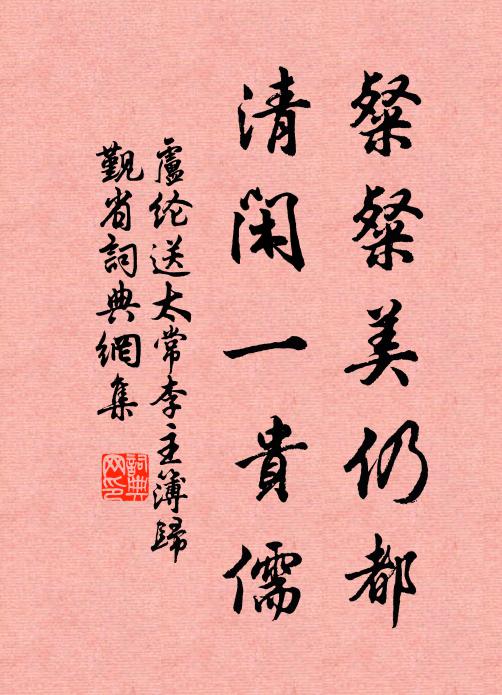 粲粲美仍都
清閑一貴儒
盧纶送太常李主簿歸
覲省詞典網集
詞典网印